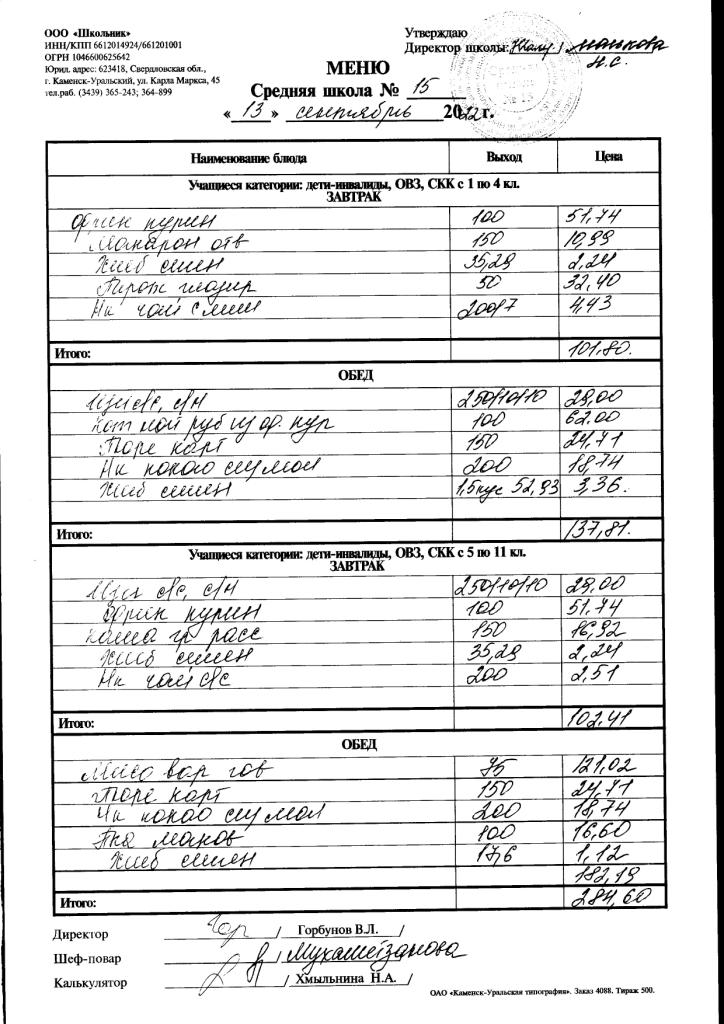 ООО «Школьник»
ИНН/КПП 6612014924/661201001
ОГРН 1046600625642
Юрид. адрес: 623418, Свердловская обл.,
г. Каменск-Уральский, ул. Карла Маркса, 45
тел.раб. (3439) 365-243; 364-899
Утверждаю
Директор школы: / Манькова
Н.С.
МЕНЮ
Средняя школа № 15
« 13 » сентябрь 2022 г.
Наименование блюда Выход Цена
Учащиеся категории: дети-инвалиды, ОВЗ, СКК с 1 по 4 кл.
ЗАВТРАК
Фрик курин 100 51,74
Макарон отв 150 10,99
Хлеб смен 35,29 2,24
Пирож глазир 50 32,40
Нк чай с лим 200/7 4,43
Итого: 101,80.
ОБЕД
Щи с/с, с/м 250/10/10 29,00
Кот мой руб из ф. кур 100 62,00
Пюре карт 150 24,71
Нк какао сгумол 200 18,74
Хлеб смен 1,5кус 52,93 3,36.
Итого: 137,81.
Учащиеся категории: дети-инвалиды, ОВЗ, СКК с 5 по 11 кл.
ЗАВТРАК
Щи с/с, с/м 250/10/10 29,00
Фрик курин 100 51,74
Каша гр расс 150 16,92
Хлеб смен 35,29 2,24
Нк чай с/с 200 2,51
Итого: 102,41
ОБЕД
Мясо вар гов 75 121,02
Пюре карт 150 24,71
Нк какао сгумол 200 18,74
Пка маков 100 16,60
Хлеб смен 17,6 1,12
182,19
Итого: 284,60
Директор / Горбунов В.Л. /
Шеф-повар / Мухаметзанова
Калькулятор / Хмыльнина Н.А. /
ОАО «Каменск-Уральская типография». Заказ 4088. Тираж 500.